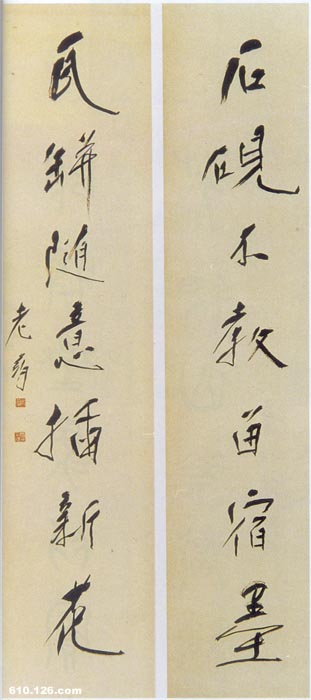 石砚不教留宿墨
瓦缾随意插新花
老舜
610.126.com